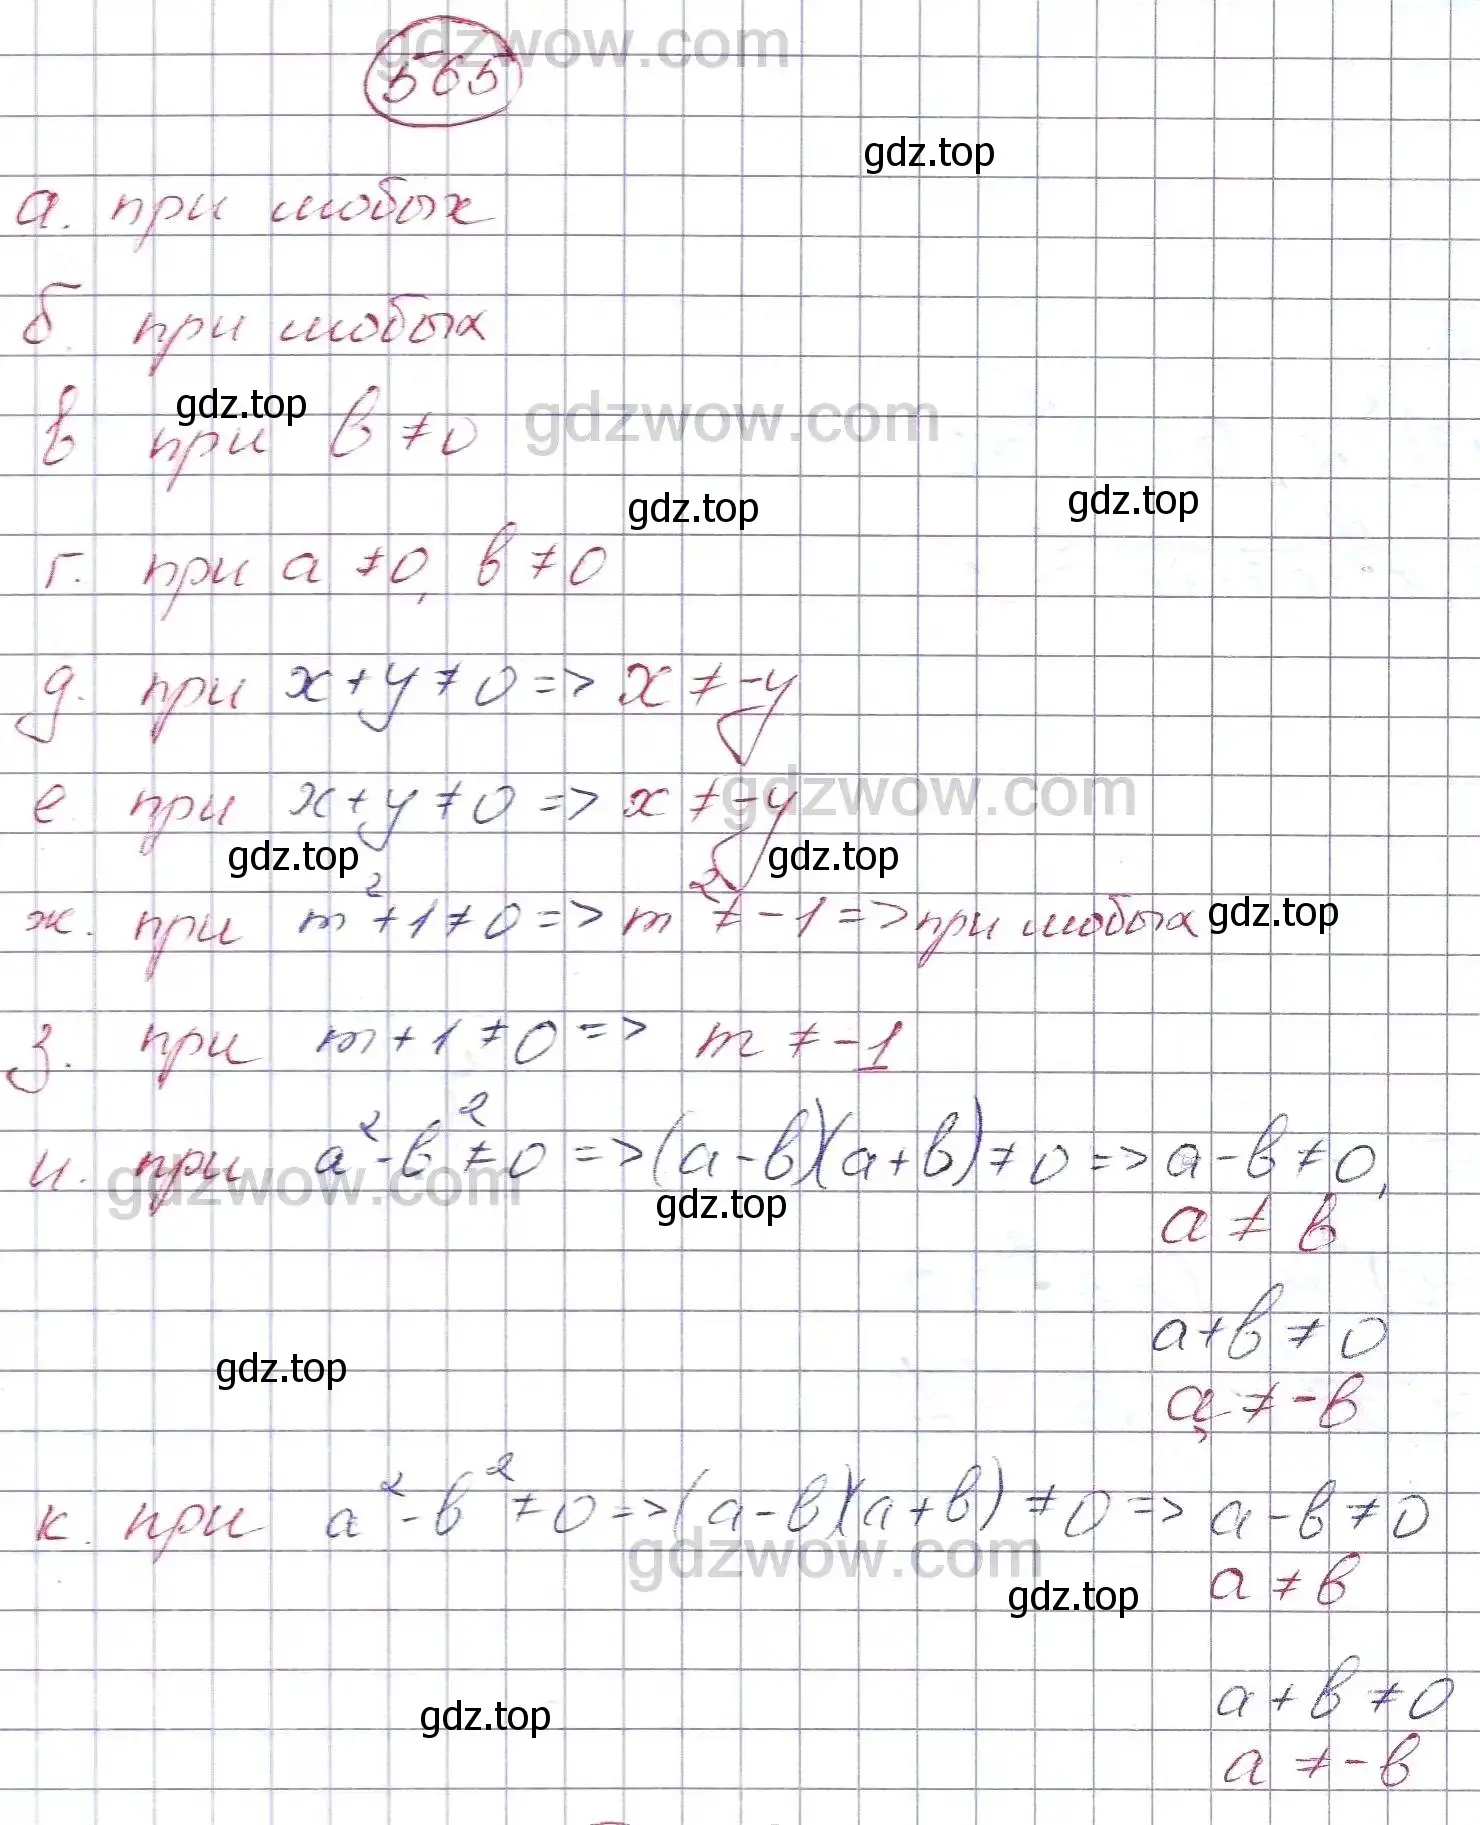 gdzwow.com
565
gdz.top
а. при любых
б. при любых
gdz.top
в при b ≠ 0 gdzwow.com
gdz.top gdz.top
г. при a ≠ 0, b ≠ 0
д. при x + y ≠ 0 => x ≠ -y
е при x + y ≠ 0 => x ≠ -y gdzwow.com
gdz.top gdz.top
ж. при m² + 1 ≠ 0 => m² ≠ -1 => при любых gdz.top
з. при m + 1 ≠ 0 => m ≠ -1
и. при a² - b² ≠ 0 => (a - b)(a + b) ≠ 0 => a - b ≠ 0,
gdzwow.com gdz.top
a ≠ b
a + b ≠ 0
gdz.top
a ≠ -b
к. при a² - b² ≠ 0 => (a - b)(a + b) ≠ 0 => a - b ≠ 0
gdzwow.com
gdz.top a ≠ b
a + b ≠ 0
gdz.top
a ≠ -b